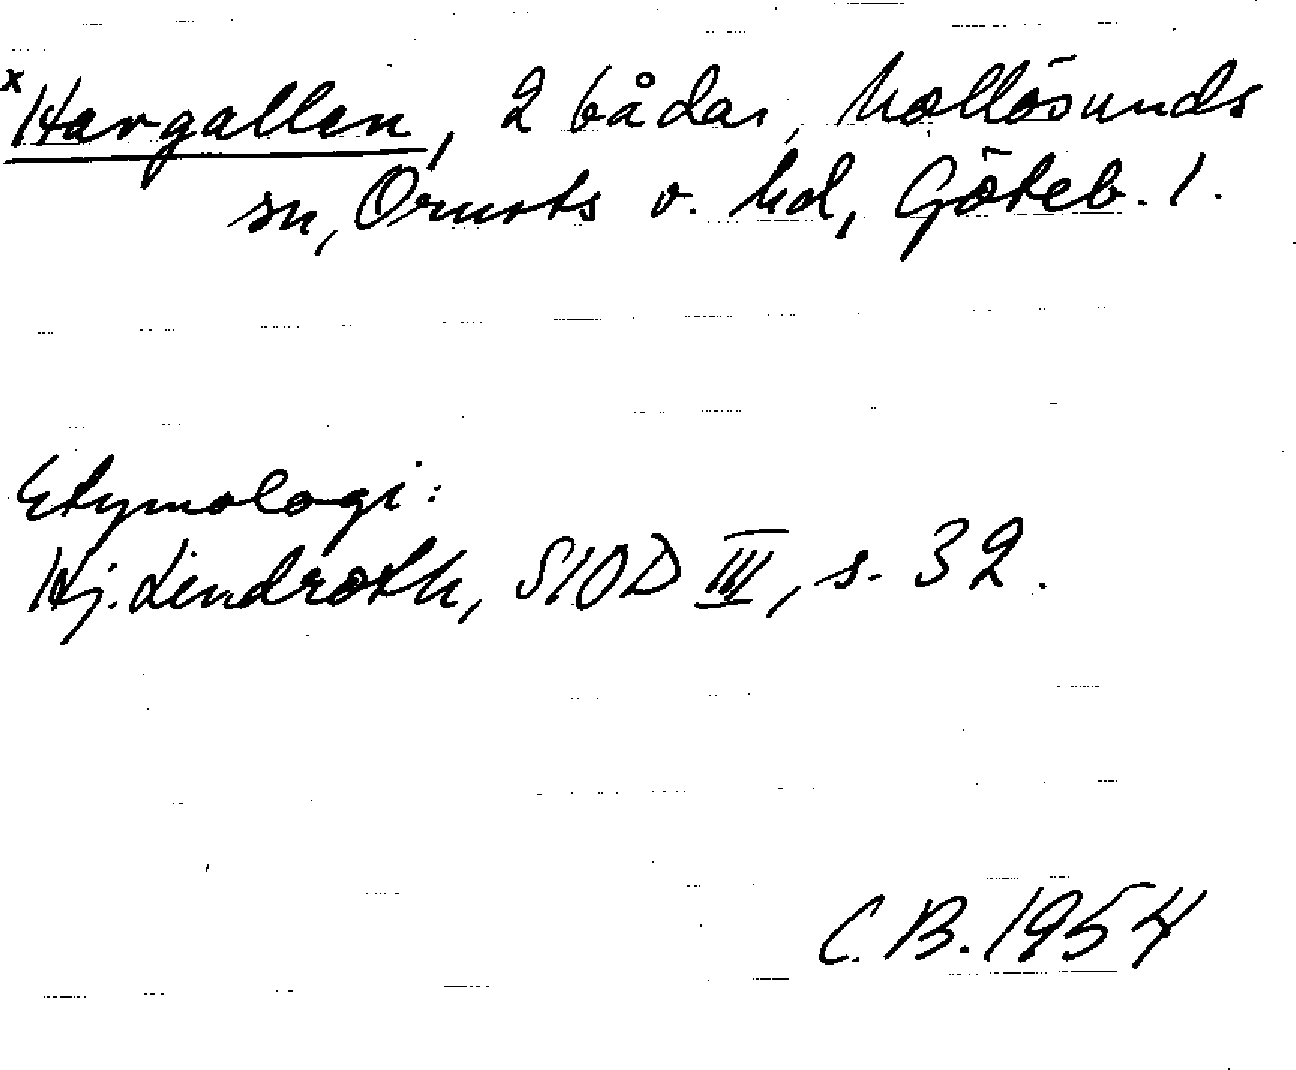 x Havgallen, 2 bådar, Mollösunds
sn, Orusts v. hd, Göteb. l.
Etymologi:
Hj. Lindroth, SIOD III, s. 32.
C. B. 1954